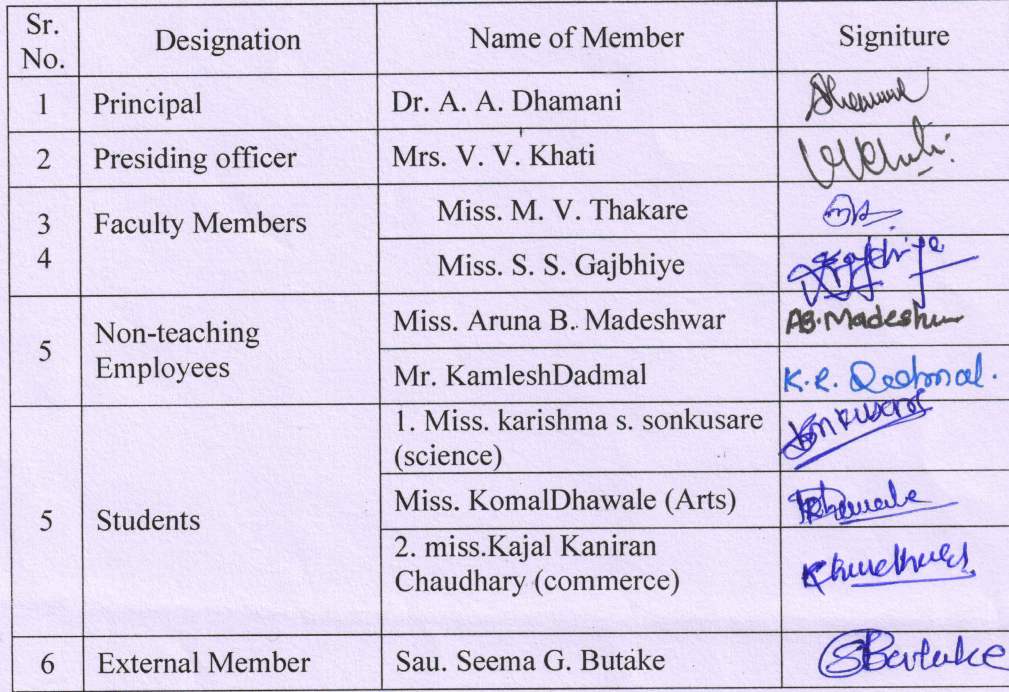 Sr. No. Designation Name of Member Signiture
1 Principal Dr. A. A. Dhamani
2 Presiding officer Mrs. V. V. Khati
3 Faculty Members Miss. M. V. Thakare
4 Miss. S. S. Gajbhiye
5 Non-teaching Employees Miss. Aruna B. Madeshwar
Mr. KamleshDadmal K.R. Dadmal.
5 Students 1. Miss. karishma s. sonkusare
(science)
Miss. KomalDhawale (Arts)
2. miss.Kajal Kaniran
Chaudhary (commerce)
6 External Member Sau. Seema G. Butake